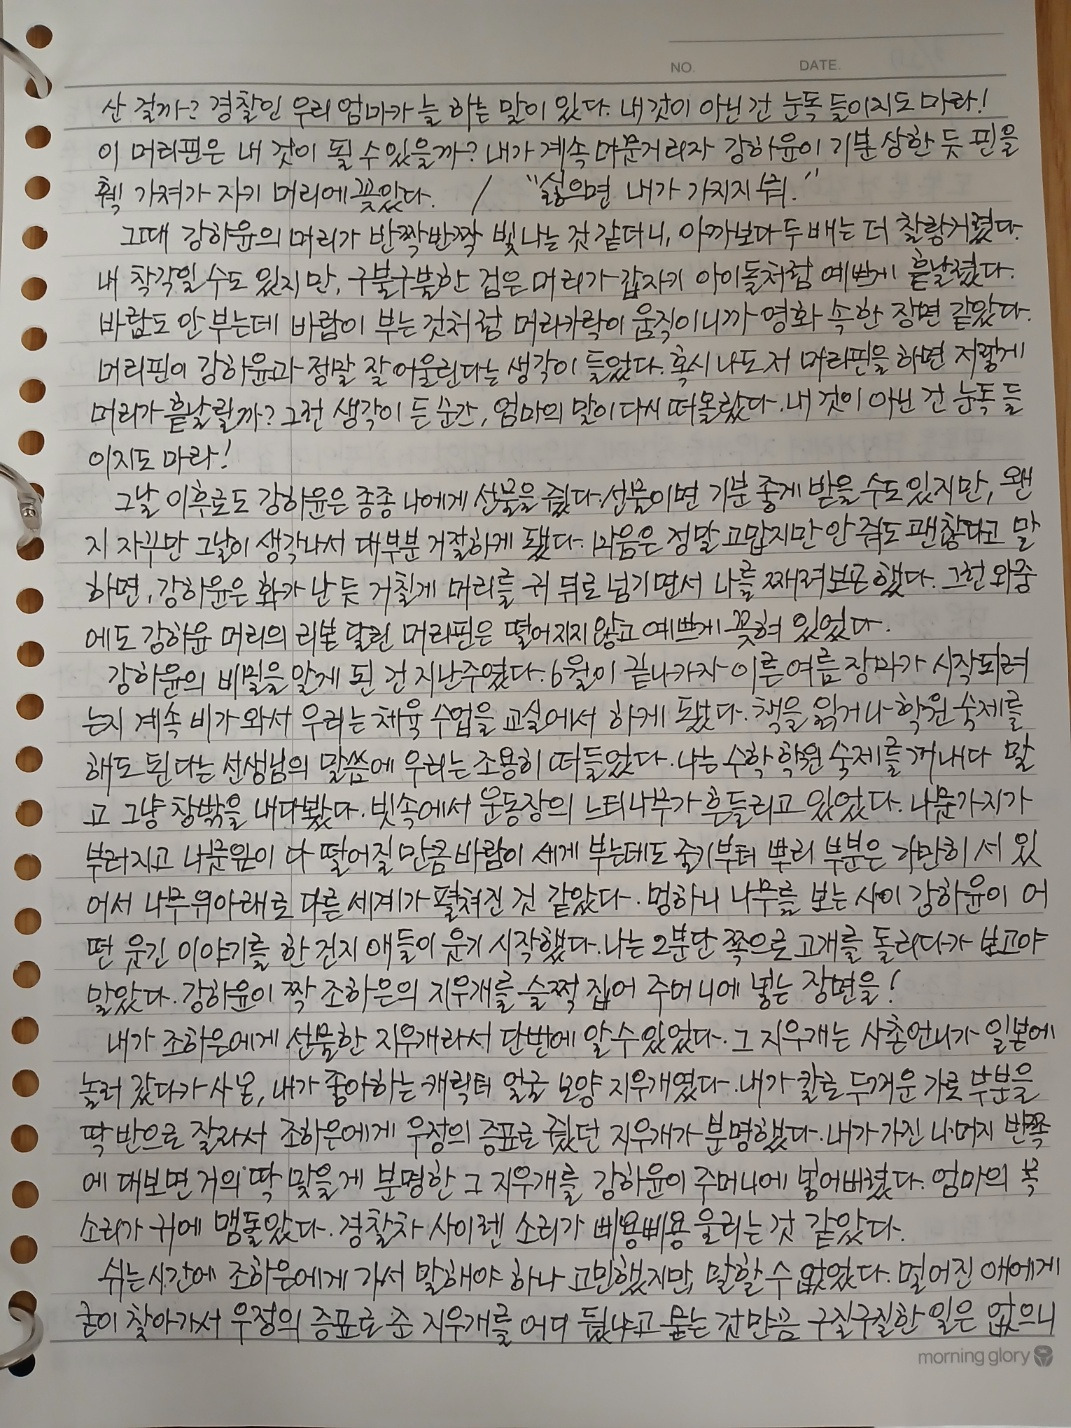 NO. DATE.
산 걸까? 경찰인 우리 엄마가 늘 하는 말이 있다. 내 것이 아닌 건 눈독 들이지도 마라!
이 머리핀은 내 것이 될 수 있을까? 내가 계속 머뭇거리자 강하윤이 기분 상한 듯 핀을
휙 가져가 자기 머리에 꽂았다. / "싫으면 내가 가지지 뭐."
그때 강하윤의 머리가 반짝반짝 빛나는 것 같더니, 아까보다 두 배는 더 찰랑거렸다.
내 착각일 수도 있지만, 구불구불한 검은 머리가 갑자기 아이돌처럼 예쁘게 흩날렸다.
바람도 안 부는데 바람이 부는 것처럼 머리카락이 움직이니까 영화 속 한 장면 같았다.
머리핀이 강하윤과 정말 잘 어울린다는 생각이 들었다. 혹시 나도 저 머리핀을 하면 저렇게
머리가 흩날릴까? 그런 생각이 든 순간, 엄마의 말이 다시 떠올랐다. 내 것이 아닌 건 눈독 들
이지도 마라!
그날 이후로도 강하윤은 종종 나에게 선물을 줬다. 선물이면 기분 좋게 받을 수도 있지만, 왠
지 자꾸만 그날이 생각나서 대부분 거절하게 됐다. 마음은 정말 고맙지만 안 줘도 괜찮다고 말
하면, 강하윤은 화가 난 듯 거칠게 머리를 귀 뒤로 넘기면서 나를 째려보곤 했다. 그런 와중
에도 강하윤 머리의 리본 달린 머리핀은 떨어지지 않고 예쁘게 꽂혀 있었다.
강하윤의 비밀을 알게 된 건 지난주였다. 6월이 끝나가자 이른 여름 장마가 시작되려
는지 계속 비가 와서 우리는 체육 수업을 교실에서 하게 됐다. 책을 읽거나 학원 숙제를
해도 된다는 선생님의 말씀에 우리는 조용히 떠들었다. 나는 수학 학원 숙제를 꺼내다 말
고 그냥 창밖을 내다봤다. 빗속에서 운동장의 느티나무가 흔들리고 있었다. 나뭇가지가
부러지고 나뭇잎이 다 떨어질 만큼 바람이 세게 부는데도 줄기부터 뿌리 부분은 가만히 서 있
어서 나무 위아래로 다른 세계가 펼쳐진 것 같았다. 멍하니 나무를 보는 사이 강하윤이 어
떤 웃긴 이야기를 한 건지 애들이 웃기 시작했다. 나는 2분단 쪽으로 고개를 돌리다가 보고야
말았다. 강하윤이 짝 조하은의 지우개를 슬쩍 집어 주머니에 넣는 장면을!
내가 조하은에게 선물한 지우개라서 단번에 알 수 있었다. 그 지우개는 사촌언니가 일본에
놀러 갔다가 사 온, 내가 좋아하는 캐릭터 얼굴 모양 지우개였다. 내가 칼로 두꺼운 가로 부분을
딱 반으로 잘라서 조하은에게 우정의 증표로 줬던 지우개가 분명했다. 내가 가진 나머지 반쪽
에 대보면 거의 딱 맞을 게 분명한 그 지우개를 강하윤이 주머니에 넣어버렸다. 엄마의 목
소리가 귀에 맴돌았다. 경찰차 사이렌 소리가 삐용삐용 울리는 것 같았다.
쉬는 시간에 조하은에게 가서 말해야 하나 고민했지만, 말할 수 없었다. 멀어진 애에게
굳이 찾아가서 우정의 증표로 준 지우개를 어디 뒀냐고 묻는 것만큼 구질구질한 일은 없으니
morning glory